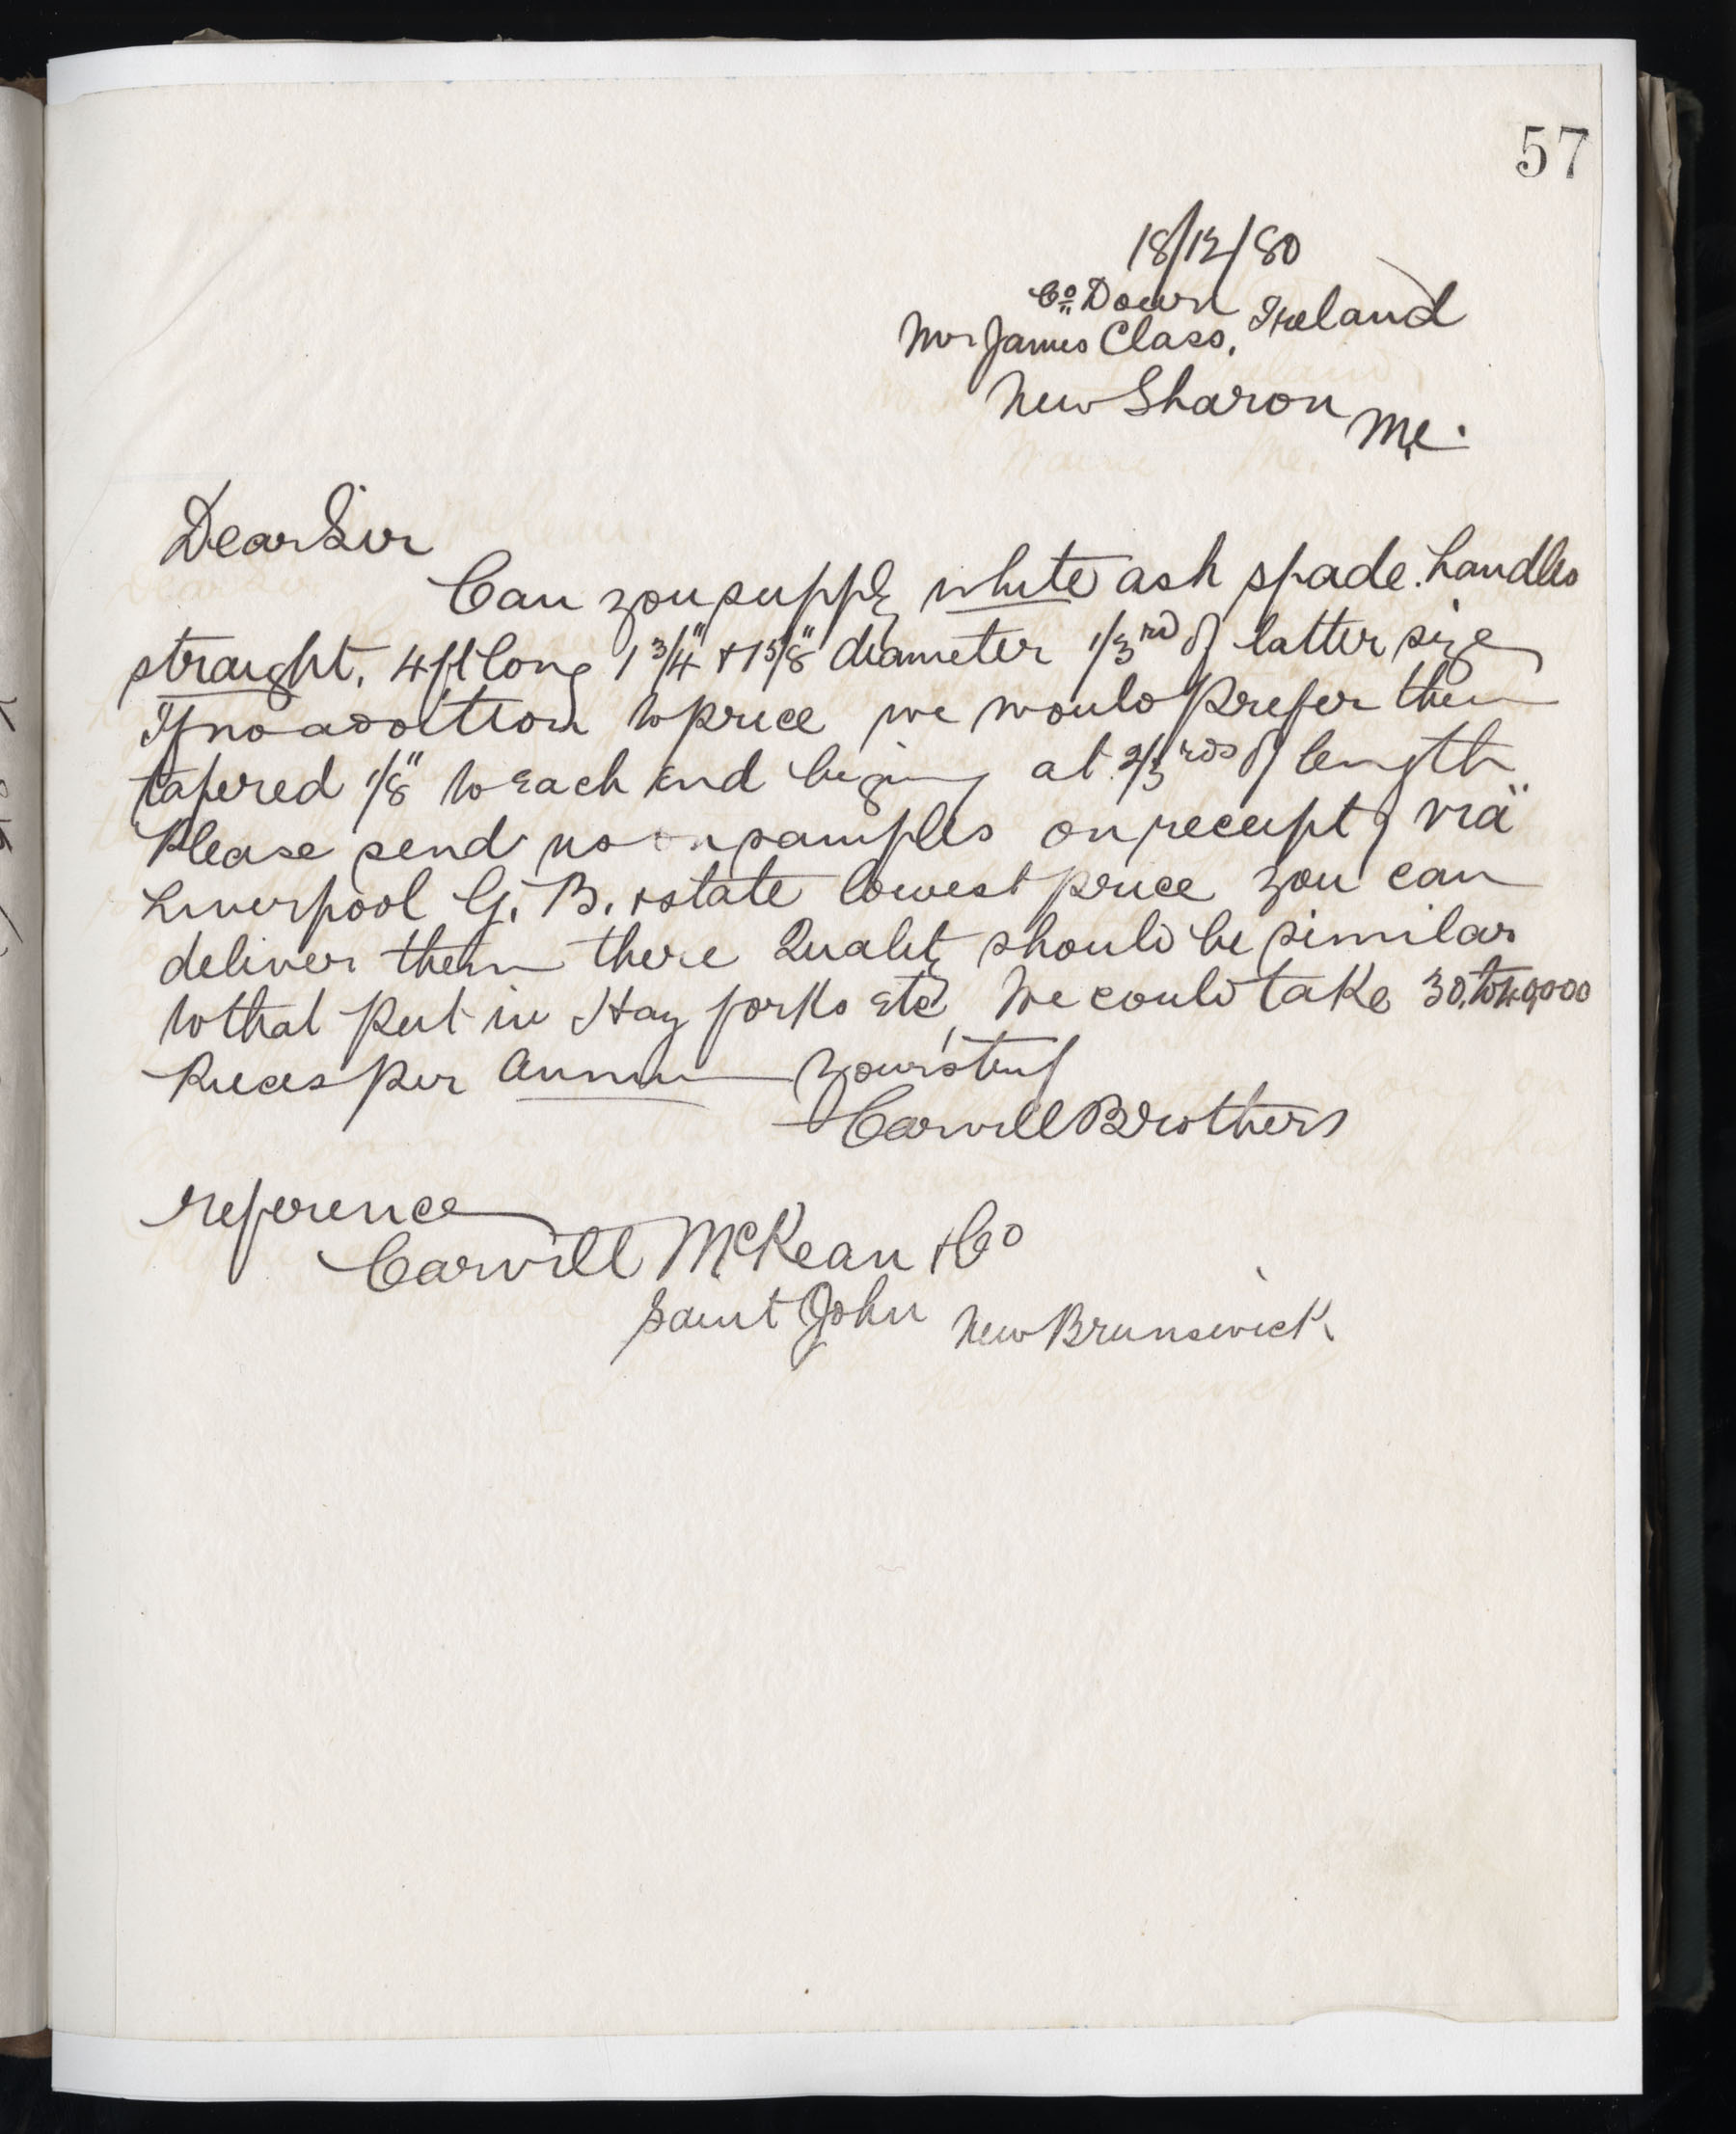 57
18/12/80
Co Down Ireland
Mr James Class,
New Sharon
Me.
Dear Sir
Can you supply white ash spade handles
straight, 4 ft long 1 3/4" + 1 5/8" diameter 1/3rd of latter size
If no addition to price we would prefer them
tapered 1/8" to each end begining at 2/3rds of length
Please send us samples on receipt via
Liverpool G. B. + state lowest price you can
deliver them there Quality should be similar
to that put in Hay forks etc We could take 30, to 40,000
Pieces per Annum Yours
Carvill Brothers
reference
Carvill McKean + Co
Saint John New Brunswick